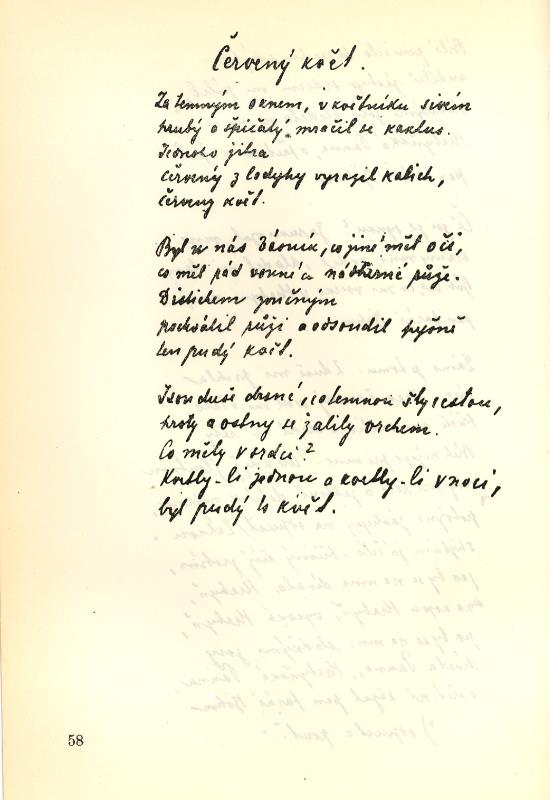 Červený květ.
Za temným oknem, v květníku sivém
hrubý a špičatý mračil se kaktus.
Jednoho jitra
červený z lodyhy vyrazil kalich,
červený květ.
Byl u nás básník, co jiné měl oči,
co měl rád vonné a nádherné růže.
Distichem zvučným
pochválil růži a odsoudil pyšně
ten rudý květ.
Jsou duše drsné, co temnou šly cestou,
hroty a ostny se zalily vrchem.
Co měly v srdci?
Kvetly-li jednou a kvetly-li v noci,
byl rudý to květ.
58